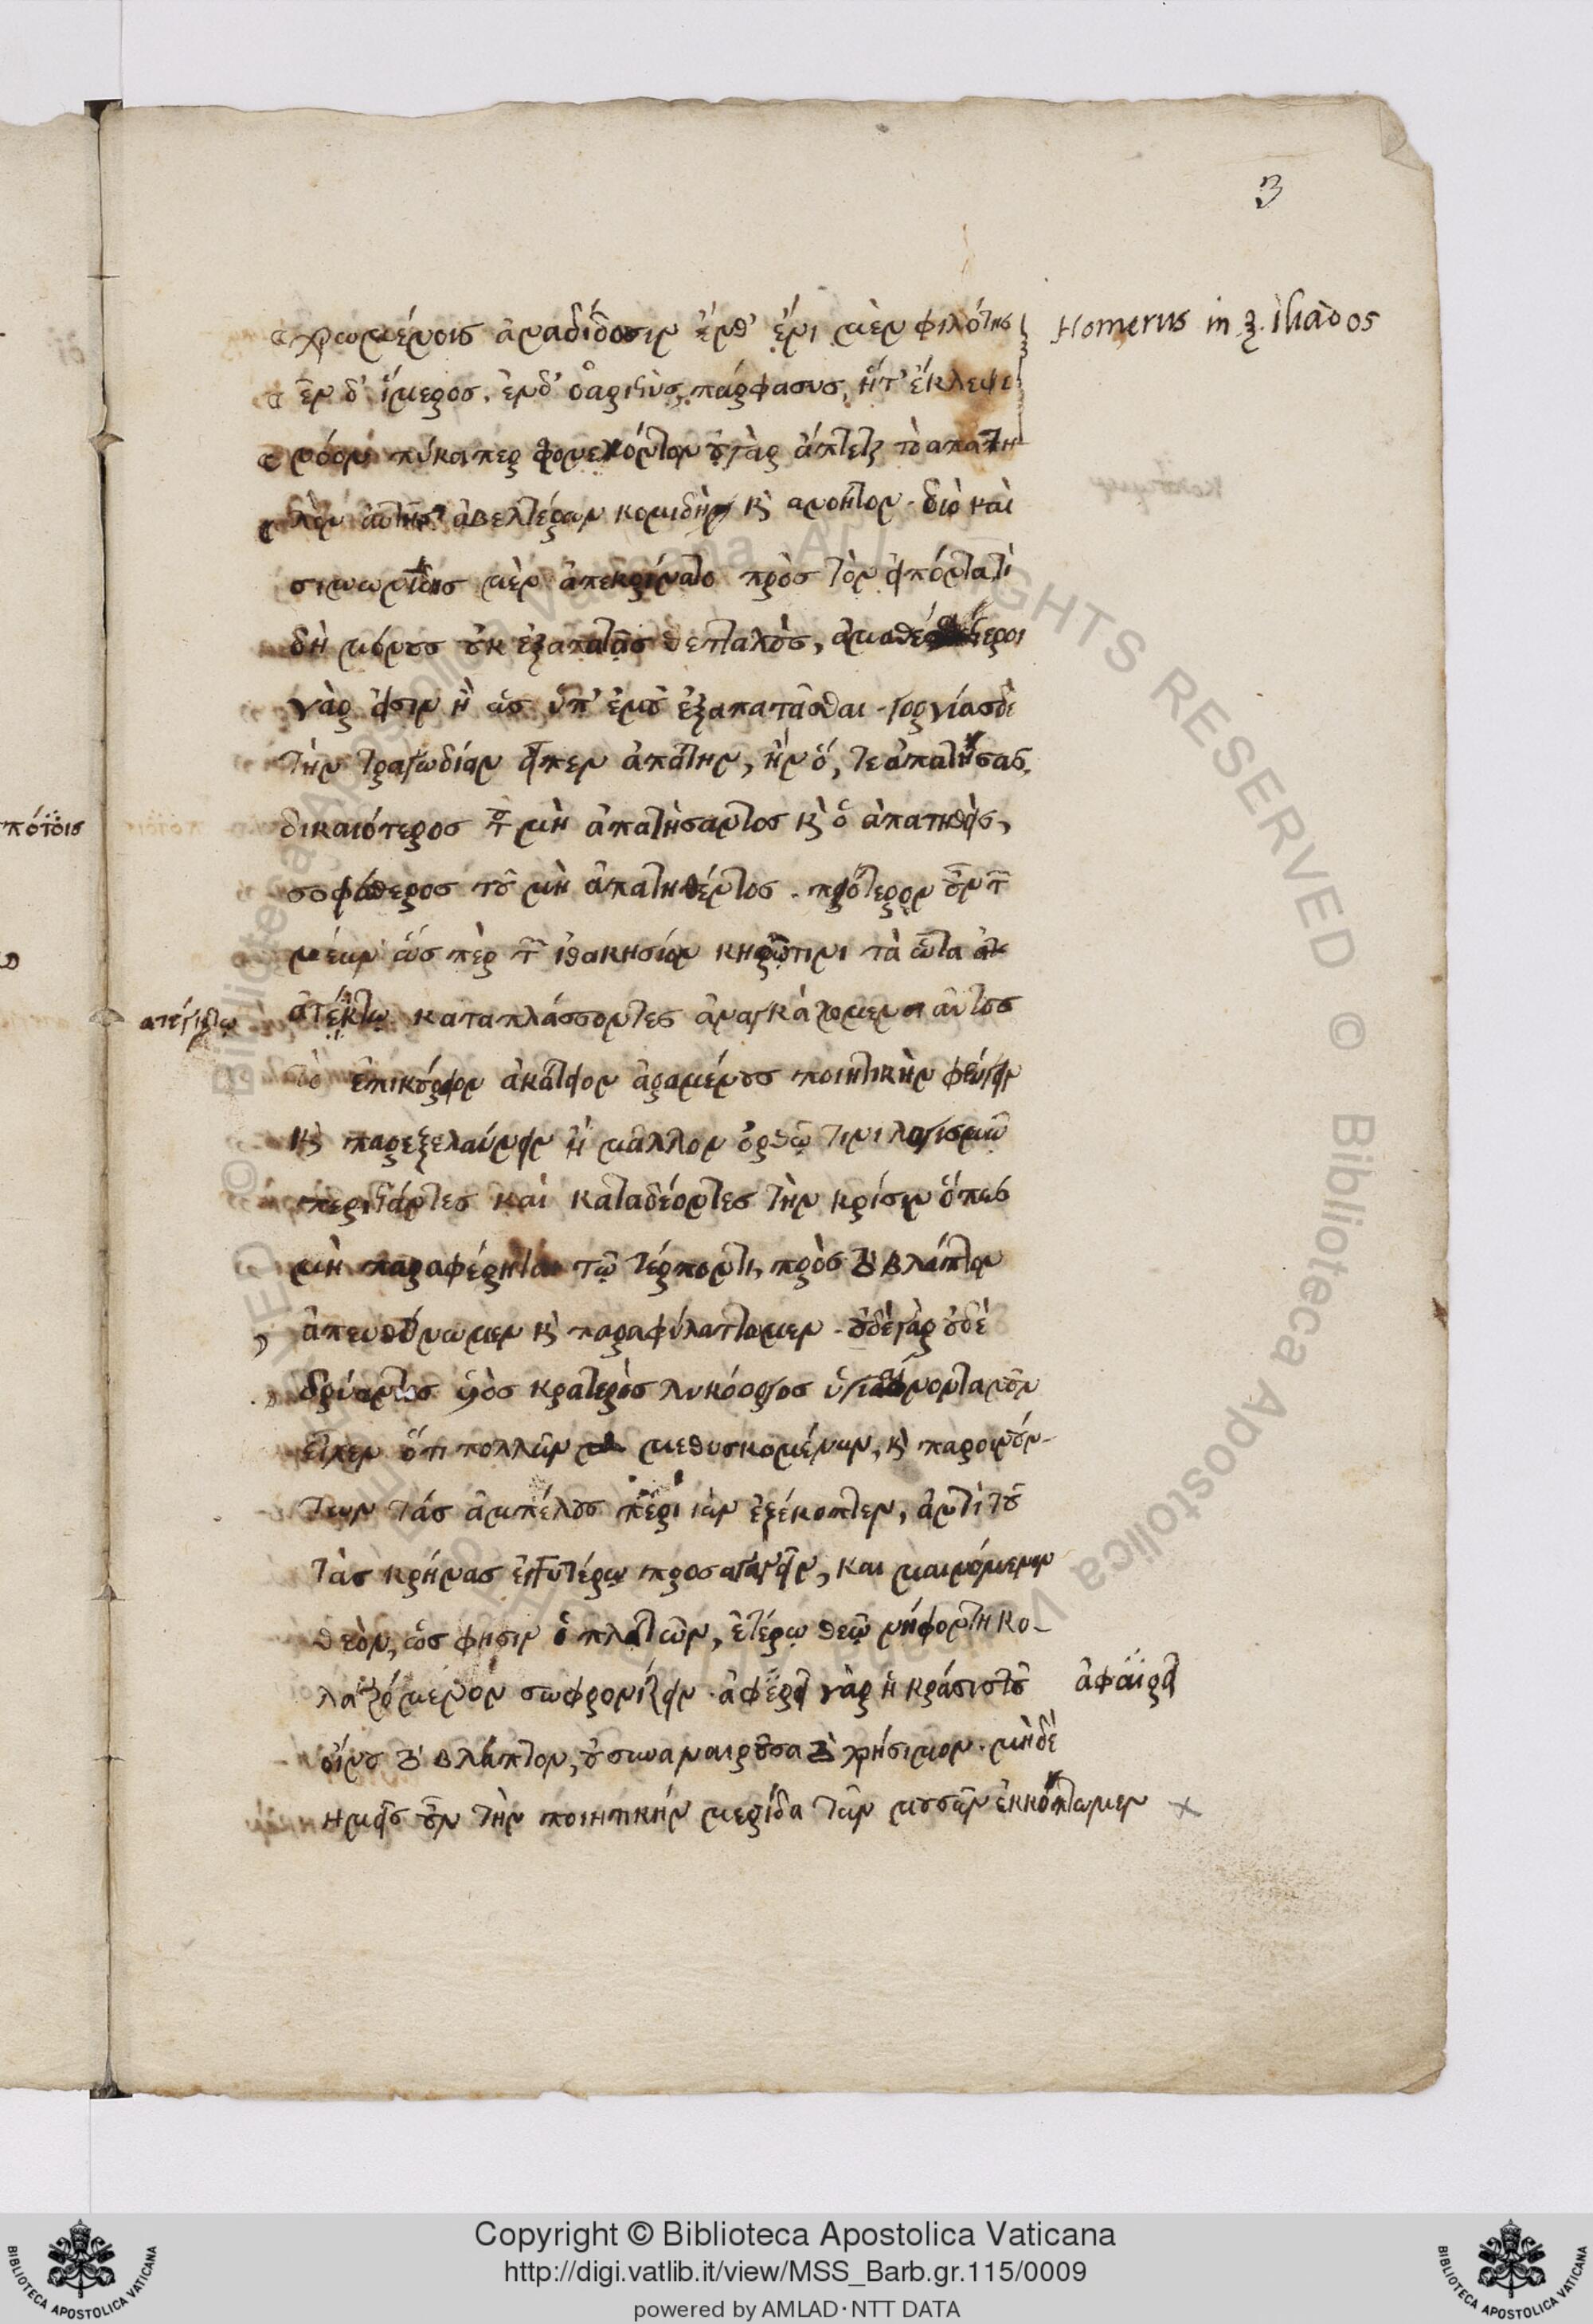 3
χρωμένοις ἀναδίδωσιν ἔνθ' ἔνι μὲν φιλότης
Homerus in ξ. ἰliàdos
ἐν δ' ἵμερος. ἐν δ' ὀαριστὺς πάρφασις, ἥτ' ἔκλεψε
νόον πύκα περ φρονεόντων οὐ γὰρ ἅπτεται τὸ απατη
λὸν αὐτῆς ἀβελτέρων κομιδῆ καὶ ανοήτων. διὸ καὶ
σιμωνίδης μὲν ἀπεκρίνατο πρὸς τὸν εἰπόντα τί
δὴ μόνους οὐκ ἐξαπατᾶς θετταλοὺς, ἀμαθέστεροι
γὰρ εἰσιν ἢ ὡς ὑπ' ἐμοῦ ἐξαπατᾶσθαι. γοργίας δὲ
τὴν τραγωδίαν εἶπεν ἀπάτην, ἣν ὅ, τε ἀπατήσας
δικαιότερος τοῦ μὴ ἀπατήσαντος καὶ ὁ ἀπατηθεὶς,
σοφώτερος τοῦ μὴ ἀπατηθέντος. πρότερον οὖν τῶν
νέων ὥσπερ τῶν ἰθακησίων κηρῶ τινι τὰ ὦτα
ατέγκτω
ἀτέγκτω καταπλάσσοντες ἀναγκάζωμεν αὐτοὺς
τὸ ἐπικούρειον ἀκάτειον ἀραμένους ποιητικὴν φεύγειν
καὶ παρεξελαύνειν ἢ μᾶλλον ὀρθῶ τινι λογισμῶ
περιστάντες καὶ καταδέοντες τὴν κρίσιν ὅπως
μὴ παραφέρηται τῶ τέρποντι, πρὸς τὸ βλάπτον
ἀπευθύνωμεν καὶ παραφυλάττωμεν. οὐδὲ γὰρ οὐδὲ
δρύαντος υἱὸς κρατερὸς λυκόοργος ὑγιαίνοντα νοῦν
εἶχεν ὅτι πολλῶν μεθυσκομένων, καὶ παροινούν-
των τάς ἀμπέλους περιιὼν ἐξέκοπτεν, ἀντὶ τοῦ
τὰς κρήνας ἐγγυτέρω προσαγαγεῖν, και μαινόμενον
θεὸν, ὥς φησιν ὁ πλάτων, ἑτέρω θεῶ νήφοντι κο-
λαζόμενον σωφρονίζειν. ἀφαίρει γὰρ ἡ κρᾶσις τοῦ
ἀφαίρει
οἴνου τὸ βλάπτον, οὐ συναναιροῦσα τὸ χρήσιμον. μὴ δὲ
ημεῖς οὖν τὴν ποιητικὴν μερίδα τῶν μουσῶν ἐκκόπτωμεν
Copyright © Biblioteca Apostolica Vaticana
http://digi.vatlib.it/view/MSS_Barb.gr.115/0009
powered by AMLAD·NTT DATA